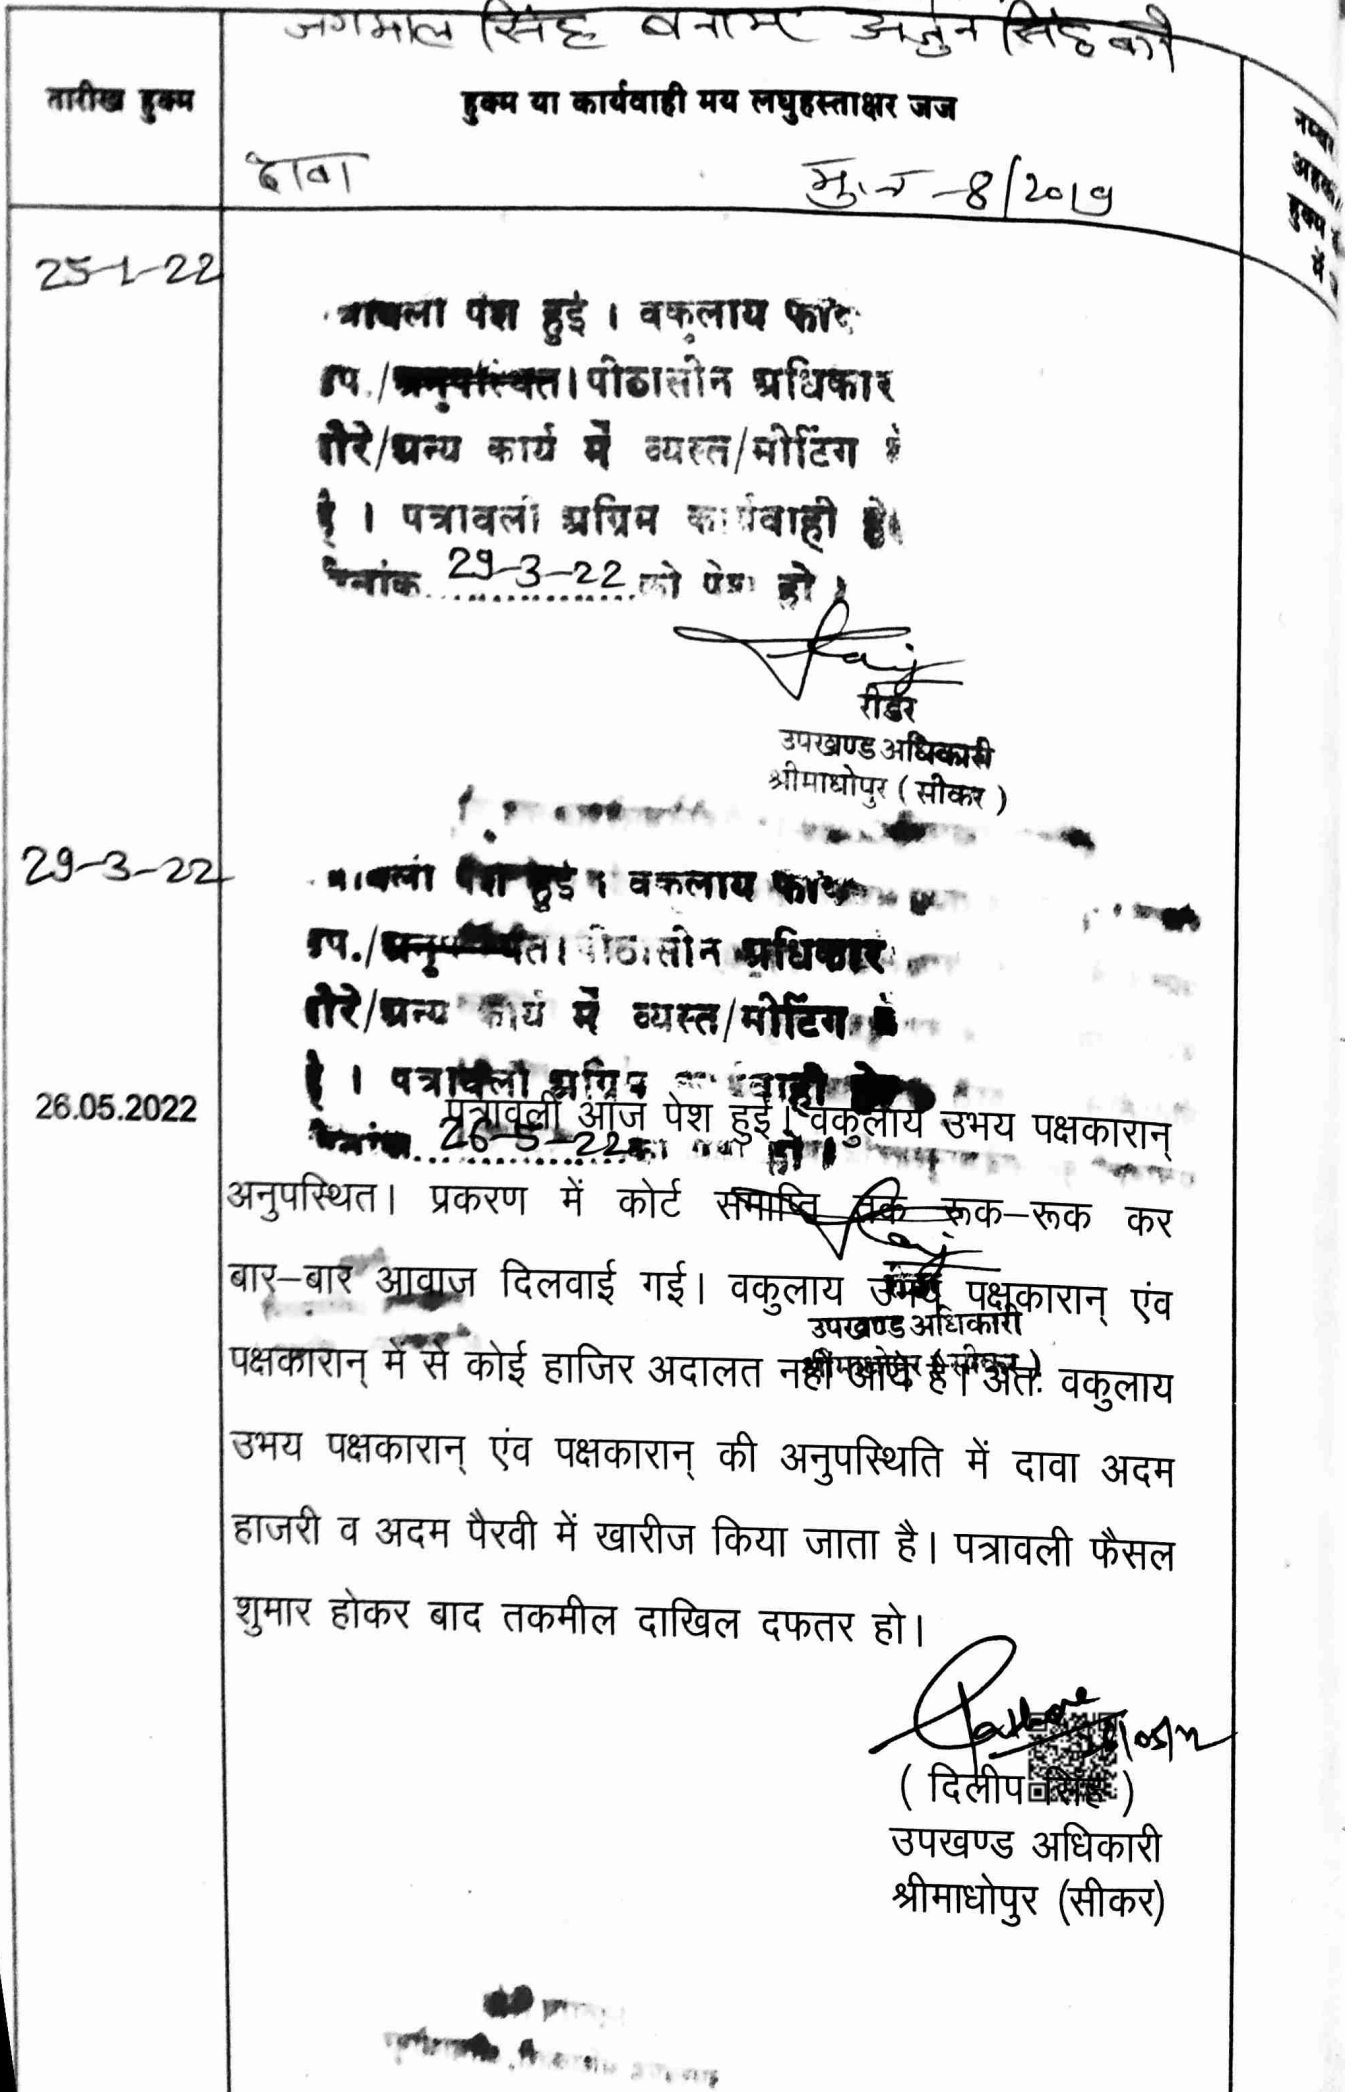 जगमाल सिंह बनाम अर्जुन सिंह
तारीख हुक्म
हुक्म या कार्यवाही मय लघुहस्ताक्षर जज
नम्बर
हुक्म
में
दावा
मु.न -8/2019
25-1-22
पेश हुई । वकुलाय
उप./अनुपस्थित। पीठासीन अधिकार
दौरे/अन्य कार्य में व्यस्त/मीटिंग में
है । पत्रावली अग्रिम कार्यवाही हेतु
दिनांक 29-3-22 को पेश हो ।
रीडर
उपखण्ड अधिकारी
श्रीमाधोपुर ( सीकर )
29-3-22
पेश हुई । वकुलाय
उप./अनुपस्थित। पीठासीन अधिकार
दौरे/अन्य कार्य में व्यस्त/मीटिंग में
है । पत्रावली अग्रिम कार्यवाही हेतु
दिनांक 26-5-22 को पेश हो ।
उपखण्ड अधिकारी
श्रीमाधोपुर ( सीकर )
26.05.2022
पत्रावली आज पेश हुई। वकुलाय उभय पक्षकारान्
अनुपस्थित। प्रकरण में कोर्ट समाप्ति तक रूक–रूक कर
बार–बार आवाज दिलवाई गई। वकुलाय उभय पक्षकारान् एंव
पक्षकारान् में से कोई हाजिर अदालत नहीं आये है। अतः वकुलाय
उभय पक्षकारान् एंव पक्षकारान् की अनुपस्थिति में दावा अदम
हाजरी व अदम पैरवी में खारीज किया जाता है। पत्रावली फैसल
शुमार होकर बाद तकमील दाखिल दफतर हो।
( दिलीप सिंह )
उपखण्ड अधिकारी
श्रीमाधोपुर (सीकर)